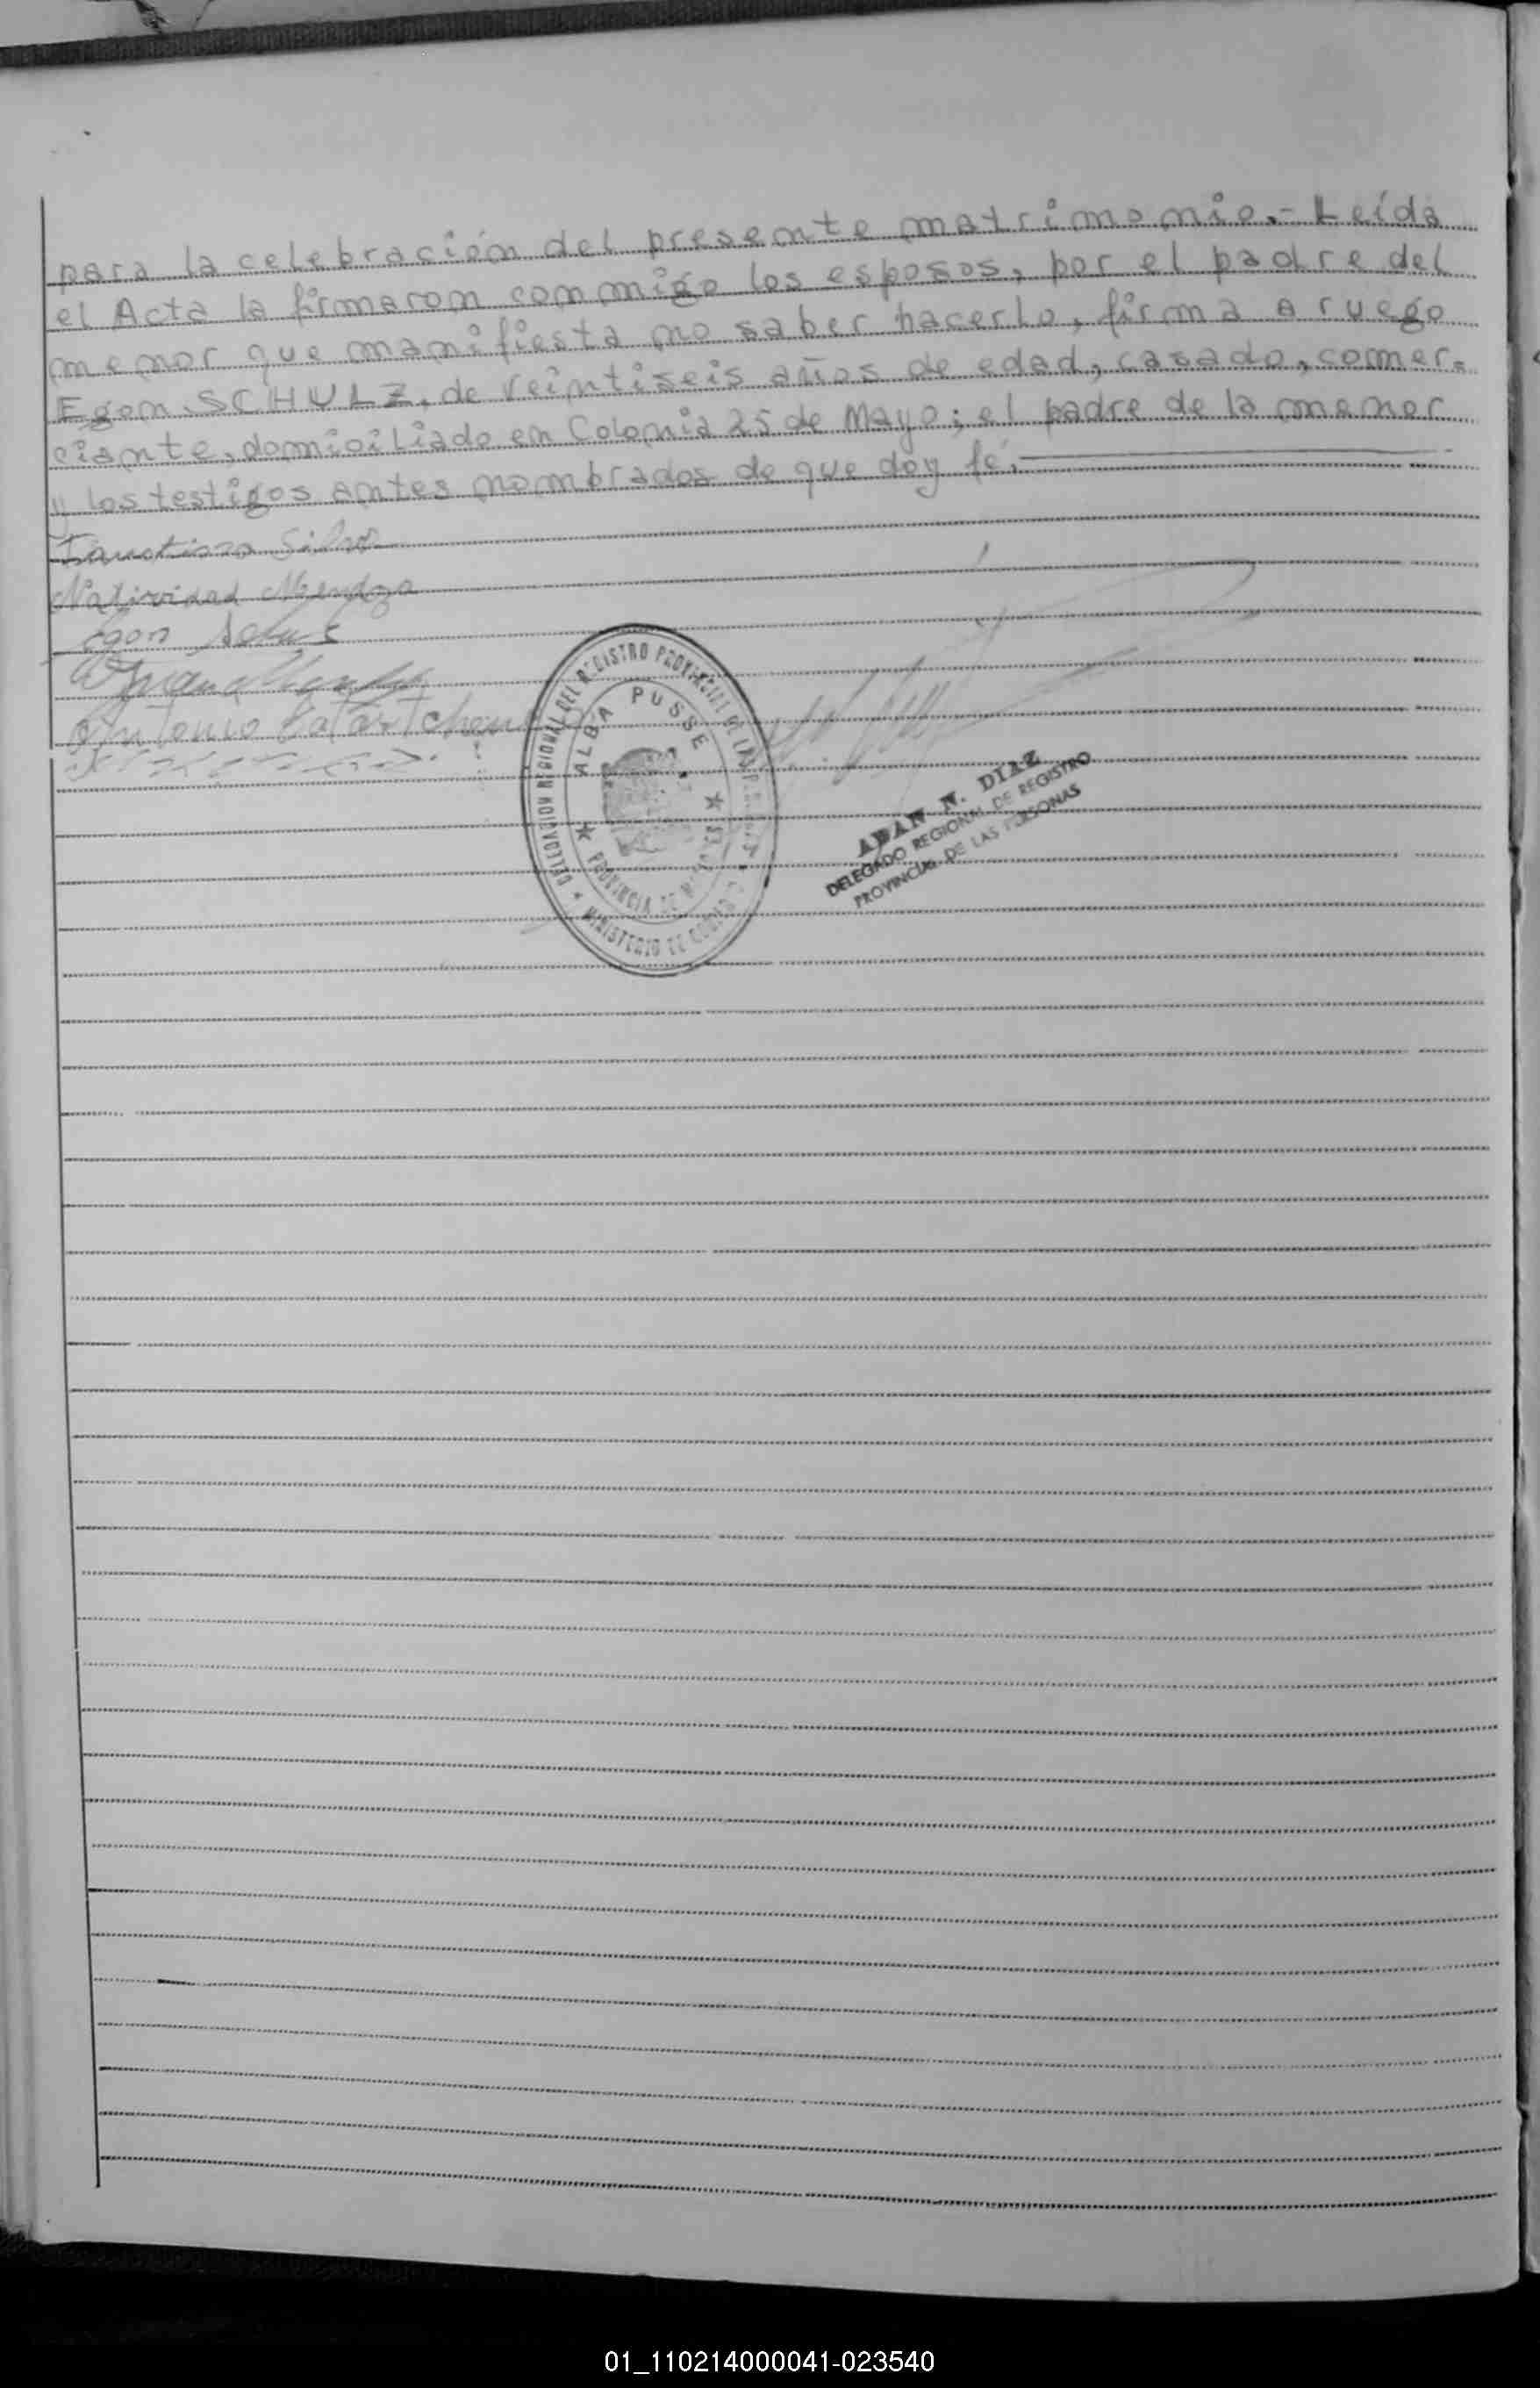 para la celebración del presente matrimonio.- Leída
el Acta la firmaron conmigo los esposos, por el padre del
menor que manifiesta no saber hacerlo, firma a ruego
Egon SCHULZ, de veintiseis años de edad, casado, comer-
ciante, domiciliado en Colonia 25 de Mayo; el padre de la menor
y los testigos antes nombrados de que doy fé.
Faustino Silva
Natividad Mendoza
Egon
Antonio
DELEGACION REGIONAL DEL REGISTRO PROVINCIAL DE LAS
ALBA POSSE
PROVINCIA DE
MINISTERIO DE
ADAN N. DIAZ
DELEGADO REGIONAL DE REGISTRO
PROVINCIAL DE LAS PERSONAS
01_110214000041-023540